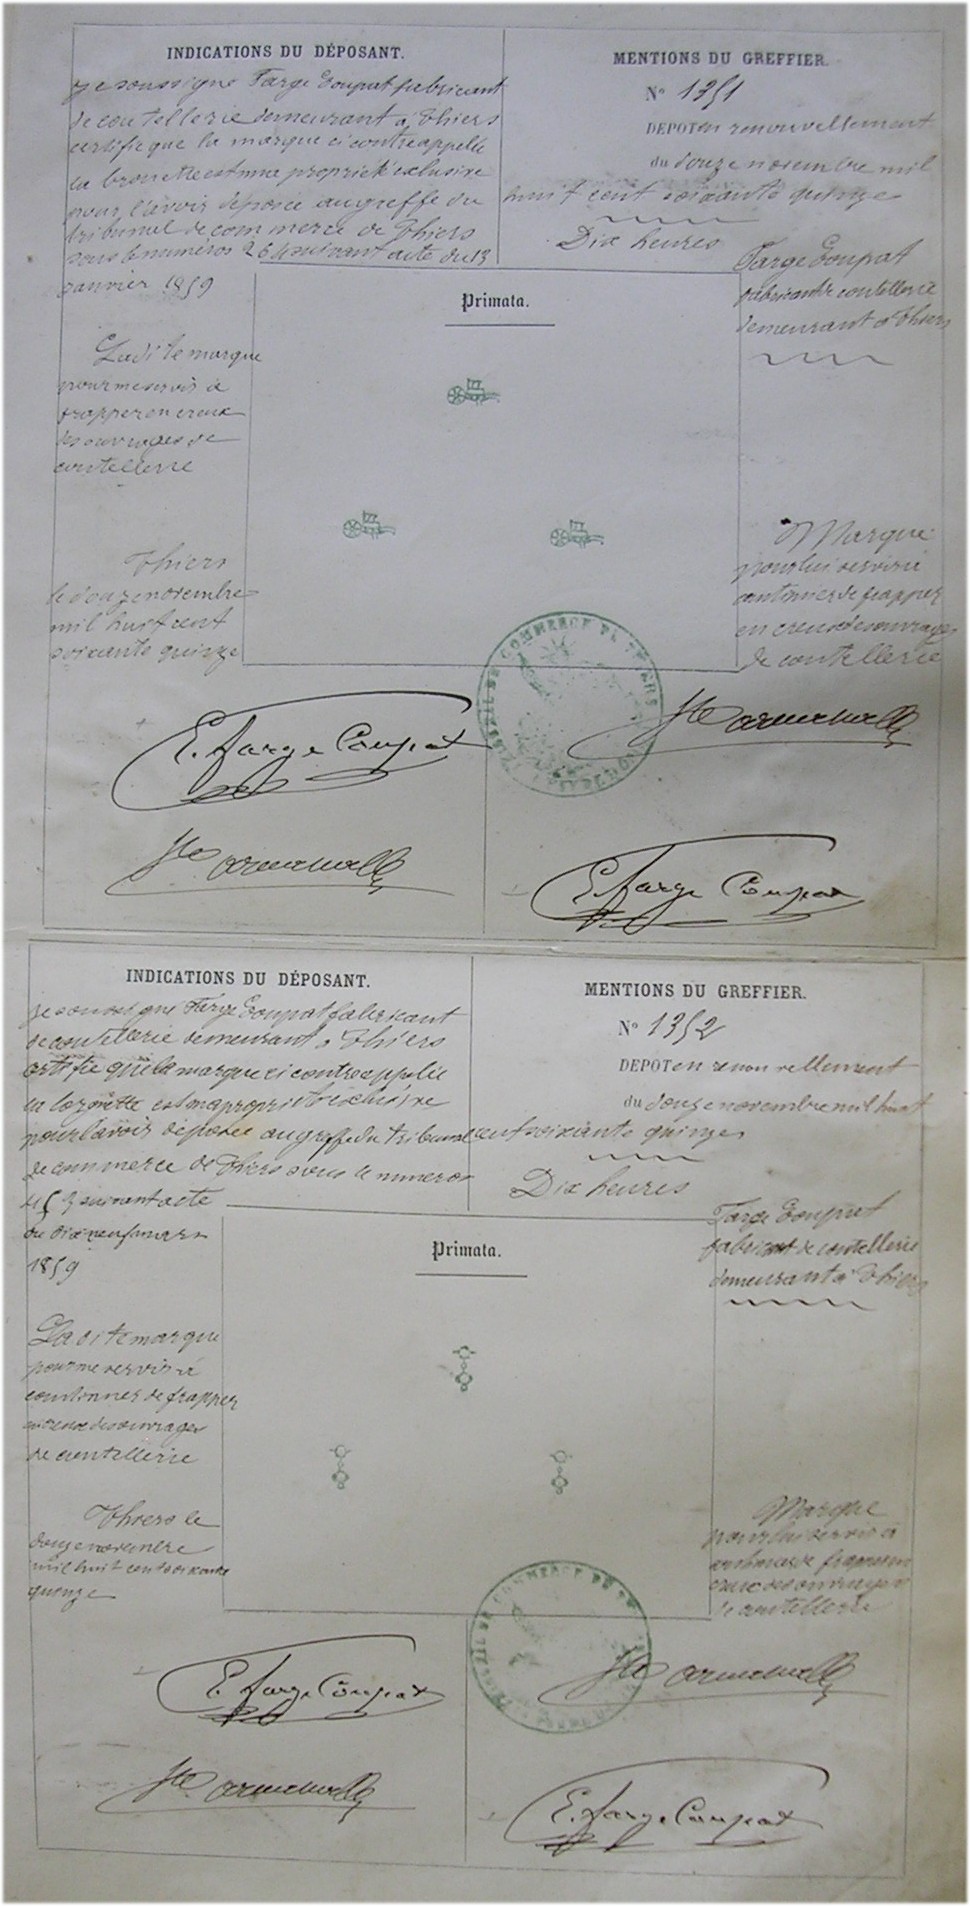 INDICATIONS DU DÉPOSANT.
Je soussigné Farge Coupat fabricant
de coutellerie demeurant à Thiers
certifie que la marque ci contre appellé
la brouette est ma propriété exclusive
pour l'avoir déposée au greffe du
tribunal de commerce de Thiers
sous le numéros 264 suivant acte du 13
Janvier 1859
Ladite marque
pour me servir à
frapper en creux
des ouvrages de
coutellerie
Thiers
le douze novembre
mil huit cent
soixante quinze
MENTIONS DU GREFFIER.
N° 1351
DEPOT en renouvellement
du douze novembre mil
huit cent soixante quinze
Dix heures
Farge Coupat
fabricant de coutellerie
demeurant à Thiers
Primata.
Marque
pour lui servir à
continuer de frapper
en creux des ouvrages
de coutellerie
TRIBUNAL DE COMMERCE DE THIERS
E. Farge Coupat
E. Farge Coupat
INDICATIONS DU DÉPOSANT.
Je soussigné Farge Coupat fabricant
de coutellerie demeurant à Thiers
certifie que la marque ci contre appelée
la lorgnette est ma propriété exclusive
pour l'avoir déposée au greffe du tribunal
de commerce de Thiers sous le numéros
suivant acte
du dix neuf
1859
La dite marque
pour me servir à
continuer de frapper
en creux des ouvrages
de coutellerie
Thiers le
douze novembre
mil huit cent soixante
quinze
MENTIONS DU GREFFIER.
N° 1352
DEPOT en renouvellement
du douze novembre mil huit
cent soixante quinze
Dix heures
Farge Coupat
fabricant de coutellerie
demeurant à Thiers
Primata.
Marque
pour lui servir à
continuer de frapper en
creux des ouvrages
de coutellerie
E. Farge Coupat
E. Farge Coupat